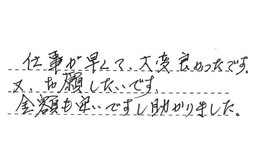 仕事が早くて、大変良かったです。
又、お願したいです。
金額も安いですし助かりました。